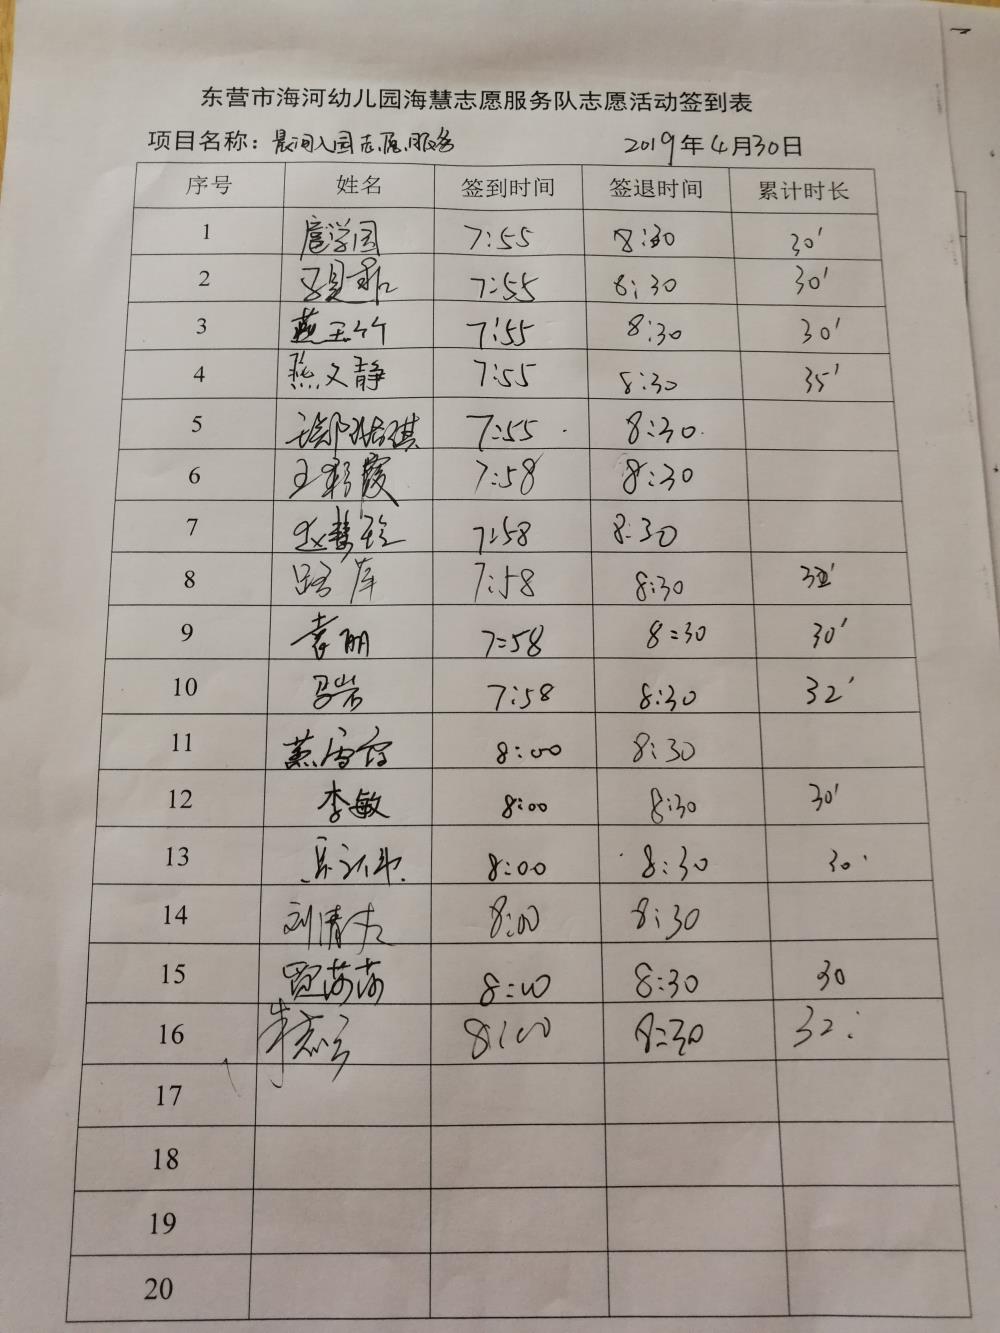 东营市海河幼儿园海慧志愿服务队志愿活动签到表
项目名称：晨间入园志愿服务 2019年4月30日
序号 姓名 签到时间 签退时间 累计时长
1 扈学国 7:55 8:30 30'
2 7:55 8:30 30'
3 燕玉竹 7:55 8:30 30'
4 燕文静 7:55 8:30 35'
5 7:55 8:30
6 王彩霞 7:58 8:30
7 7:58 8:30
8 路萍 7:58 8:30 32'
9 袁丽 7:58 8:30 30'
10 马岩 7:58 8:30 32'
11 8:00 8:30
12 李敏 8:00 8:30 30'
13 8:00 8:30 30'
14 8:00 8:30
15 贾莎莎 8:00 8:30 30
16 8:00 8:30 32'
17
18
19
20